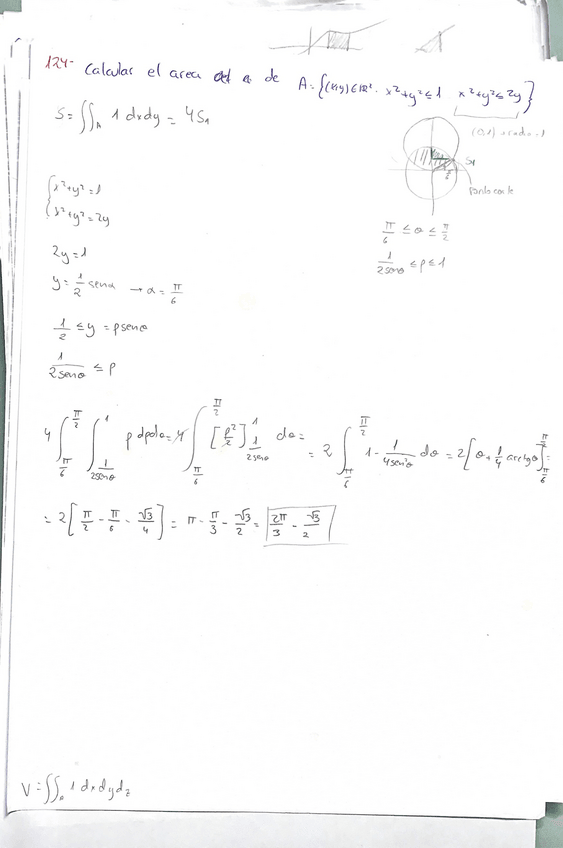 124- Calcular el area de A = {(x,y) ∈ ℝ² · x²+y² ≤ 1 x²+y² ≤ 2y}
S = ∬_A 1 dxdy = 4S₁
(0,1) radio = 1
S₁
Punto corte
{ x²+y² = 1
{ x²+y² = 2y
2y = 1
y = 1/2 senα → α = π/6
π/6 ≤ θ ≤ π/2
1/(2senθ) ≤ ρ ≤ 1
1/2 ≤ y = ρsenθ
1/(2senθ) ≤ ρ
4 ∫_{π/6}^{π/2} ∫_{1/(2senθ)}^{1} ρ dρdθ = 4 ∫_{π/6}^{π/2} [ρ²/2]_{1/(2senθ)}^{1} dθ = = 2 ∫_{π/6}^{π/2} 1 - 1/(4sen²θ) dθ = 2[θ + 1/4 arctgθ]_{π/6}^{π/2} =
= 2[π/2 - π/6 - √3/4] = π - π/3 - √3/2 = 2π/3 - √3/2
V = ∬ 1 dxdydz